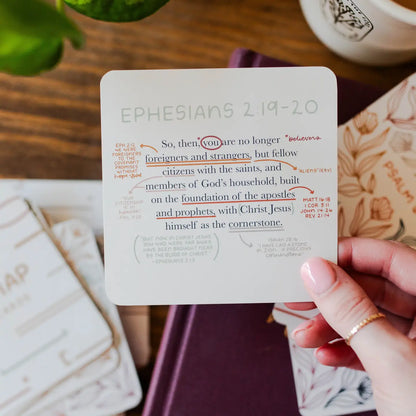 EPHESIANS 2:19-20
So, then, you are no longer
foreigners and strangers, but fellow
citizens with the saints, and
members of God's household, built
on the foundation of the apostles
and prophets, with Christ Jesus
himself as the cornerstone.
*believers
EPH 2:12
WE WERE
FOREIGNERS
TO THE
COVENANT
PROMISES
WITHOUT
HOPE + GOD
OUR
CITIZENSHIP
IS IN
HEAVEN!
MATT 16:18
1 COR 3:11
JOHN 14:26
REV 21:14
"BUT NOW IN CHRIST JESUS,
YOU WHO WERE FAR AWAY
HAVE BEEN BROUGHT NEAR
BY THE BLOOD OF CHRIST"
-EPHESIANS 2:13
ISAIAH 28:16
"I HAVE LAID A STONE
IN ZION... A PRECIOUS
CORNERSTONE"
MAP
CARDS
PSALM